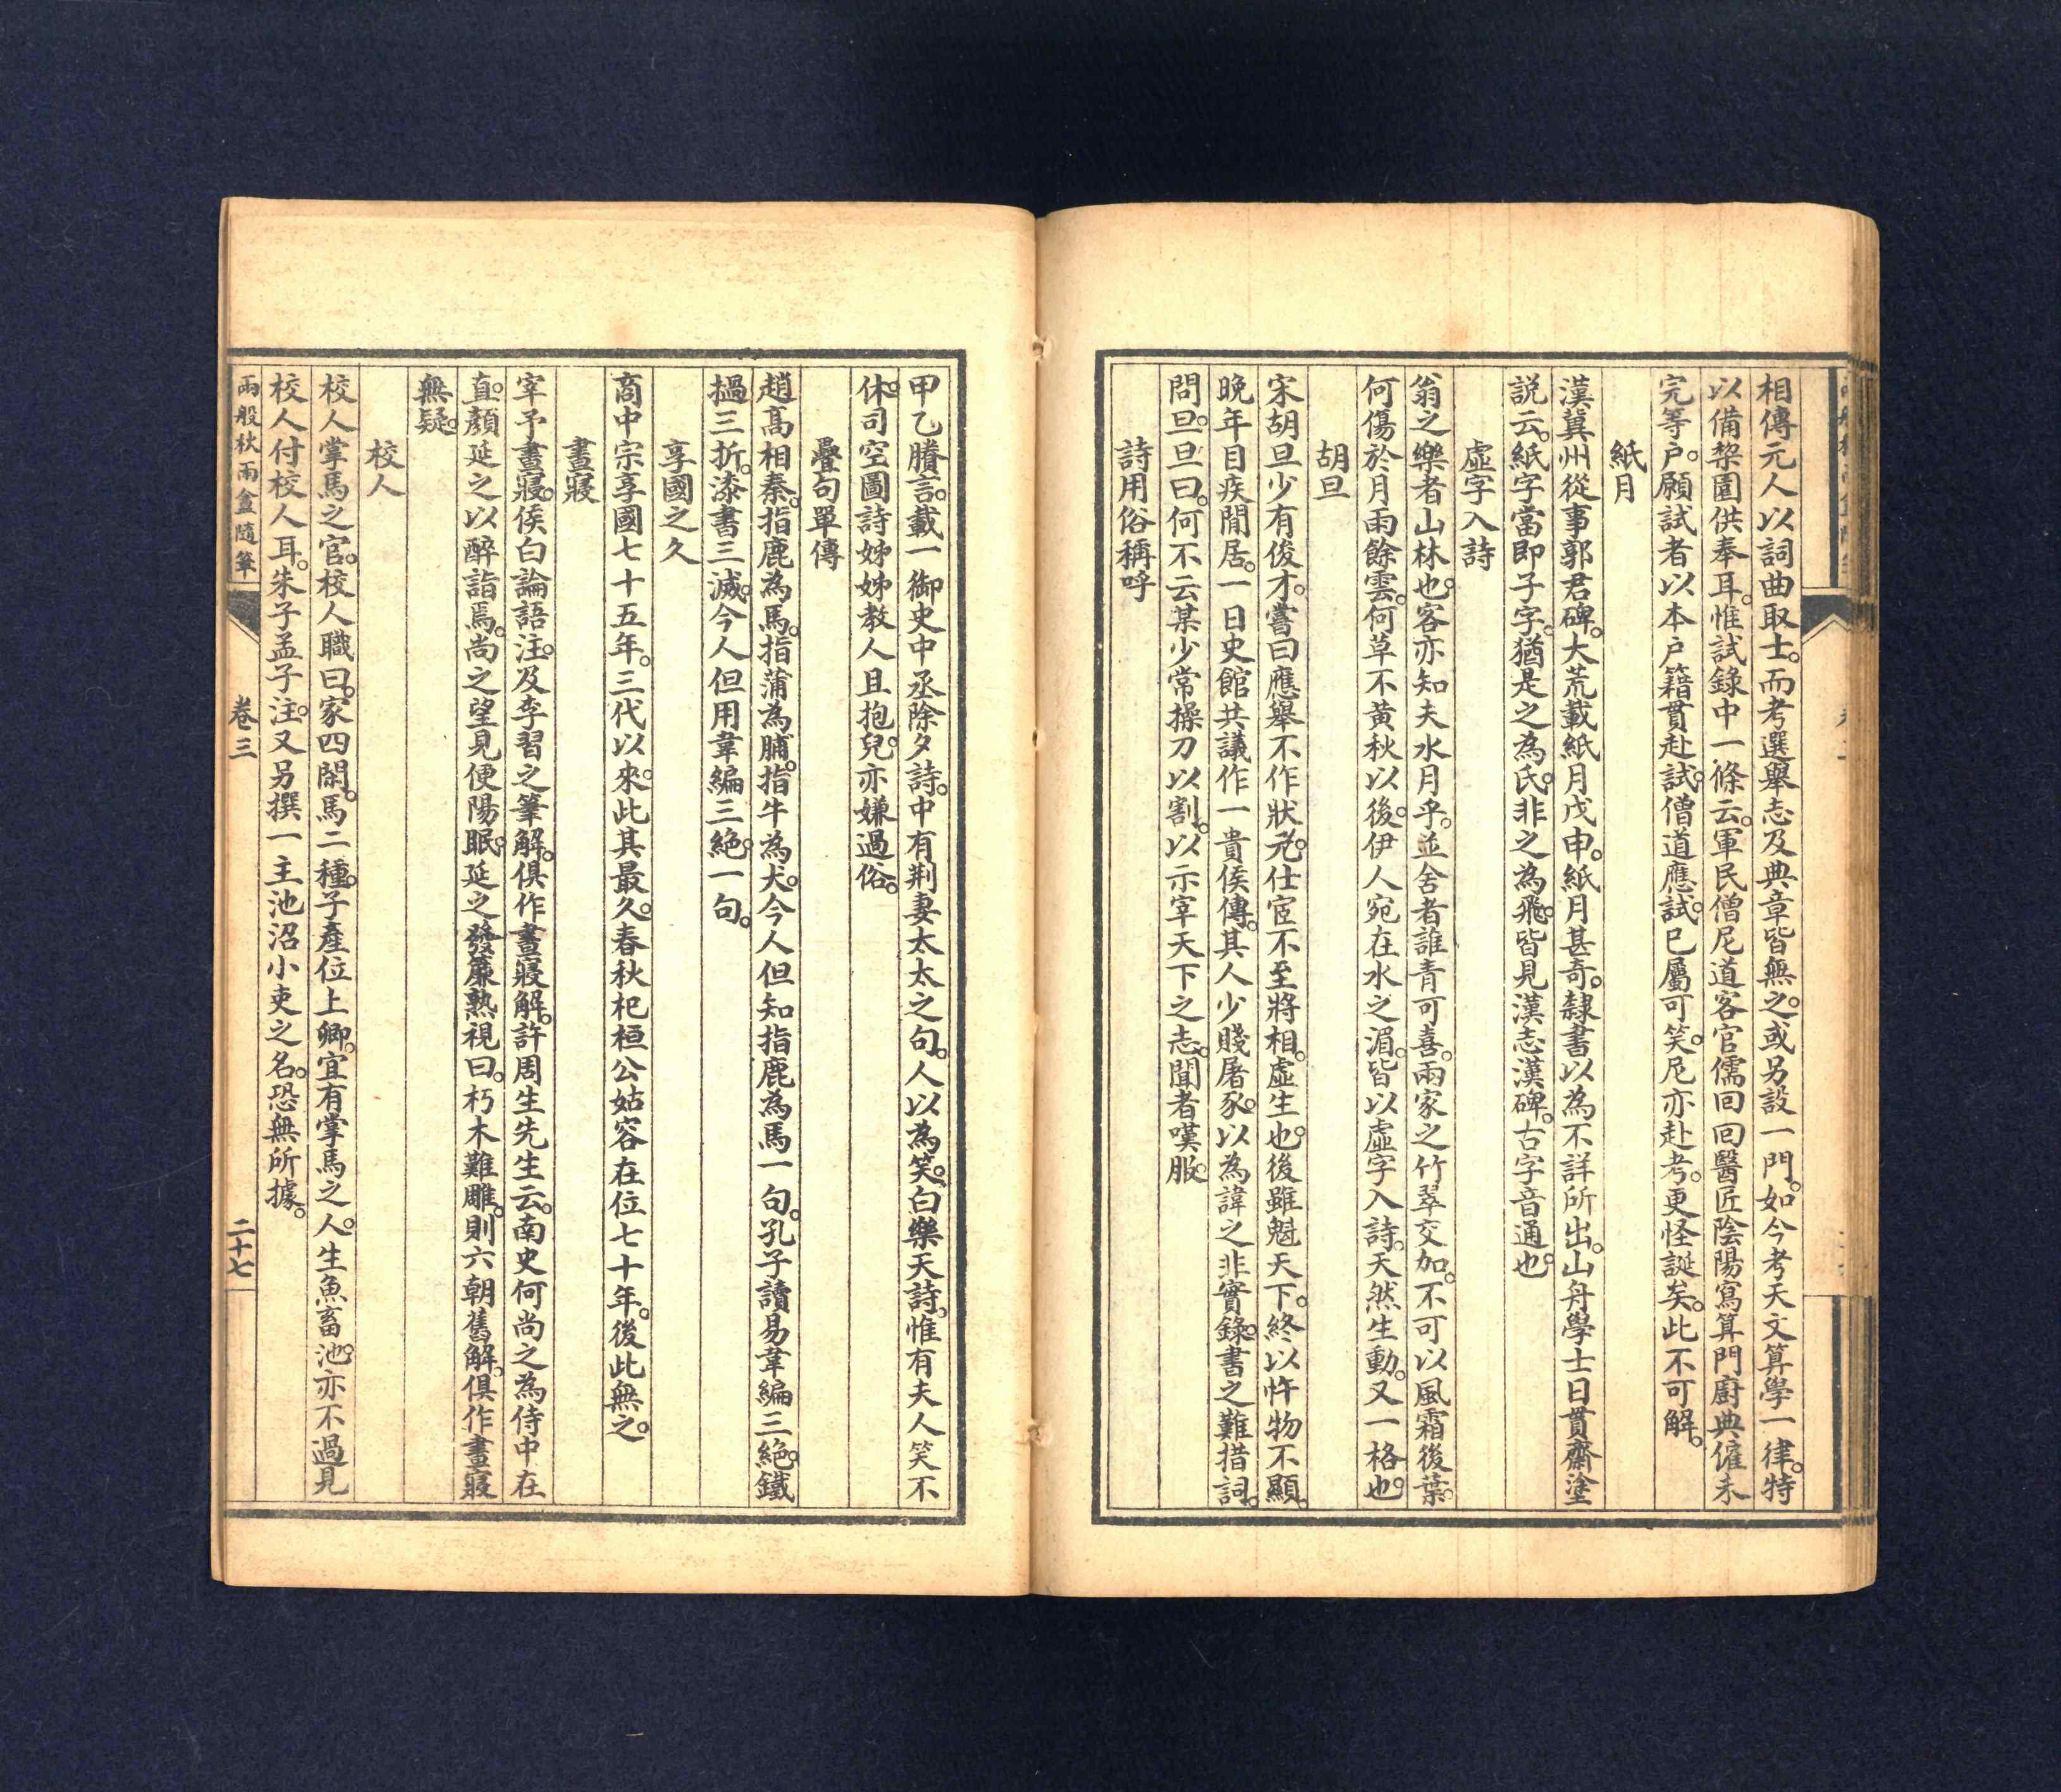 相傳元人以詞曲取士。而考選舉志及典章皆無之。或另設一門。如今考天文算學一律。特
以備棃園供奉耳。惟試錄中一條云。軍民僧尼道客官儒回回醫匠陰陽寫算門廚典僱未
完等户。願試者以本户籍貫赴試。僧道應試。已屬可笑。尼亦赴考。更怪誕矣。此不可解。
紙月
漢冀州從事郭君碑。大荒載紙月戊申。紙月甚奇。隸書以為不詳所出。山舟學士日貫齋塗
説云。紙字當即子字。猶是之為氏。非之為飛。皆見漢志漢碑。古字音通也。
虛字入詩
翁之樂者山林也。客亦知夫水月乎。並舍者誰青可喜。兩家之竹翠交加。不可以風霜後葉。
何傷於月雨餘雲。何草不黄秋以後。伊人宛在水之湄。皆以虛字入詩。天然生動。又一格也。
胡旦
宋胡旦少有俊才。嘗曰應舉不作狀元。仕宦不至將相。虛生也。後雖魁天下。終以忤物不顯。
晚年目疾閒居。一日史館共議作一貴侯傳。其人少賤屠豕。以為諱之非實錄。書之難措詞。
問旦。旦曰。何不云某少常操刀以割。以示宰天下之志。聞者嘆服。
詩用俗稱呼
甲乙賸言。載一御史中丞除夕詩。中有荆妻太太之句。人以為笑。白樂天詩。惟有夫人笑不
休。司空圖詩姊姊教人且抱兒。亦嫌過俗。
疊句單傳
趙高相秦。指鹿為馬。指蒲為脯。指牛為犬。今人但知指鹿為馬一句。孔子讀易韋編三絶。鐵
撾三折。漆書三滅。今人但用韋編三絶一句。
享國之久
商中宗享國七十五年。三代以來。此其最久。春秋杞桓公姑容在位七十年。後此無之。
晝寢
宰予晝寢。侯白論語注。及李習之筆解。俱作畫寢解。許周生先生云。南史何尚之為侍中在
直。顏延之以醉詣焉。尚之望見便陽眠。延之發簾熟視曰。朽木難雕。則六朝舊解。俱作晝寢
無疑。
校人
校人掌馬之官。校人職曰。家四閑。馬二種。子產位上卿。宜有掌馬之人。生魚畜池。亦不過見
校人付校人耳。朱子孟子注。又另撰一主池沼小吏之名。恐無所據。
兩般秋雨盦隨筆
卷三
二十七